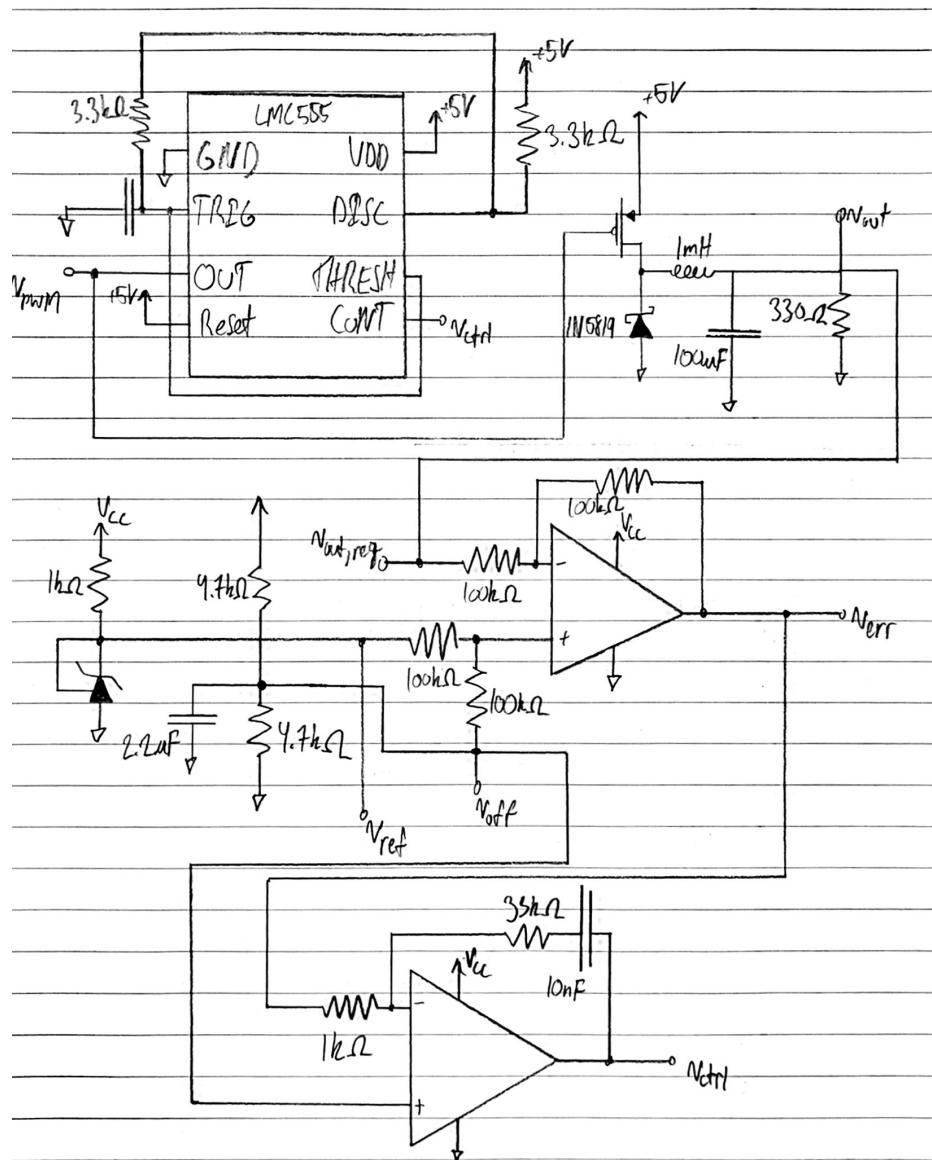 +5V
+5V
3.3kΩ
LMC555
+5V
3.3kΩ
GND
VDD
TRIG
DISC
Vout
1mH
Vpwm
OUT
THRESH
+5V
Reset
CONT
Vctrl
1N5819
330Ω
100uF
Vcc
100kΩ
Vcc
Vout,reg
1kΩ
4.7kΩ
100kΩ
-
Verr
+
100kΩ
100kΩ
2.2uF
4.7kΩ
Voff
Vref
33kΩ
Vcc
10nF
-
1kΩ
Vctrl
+